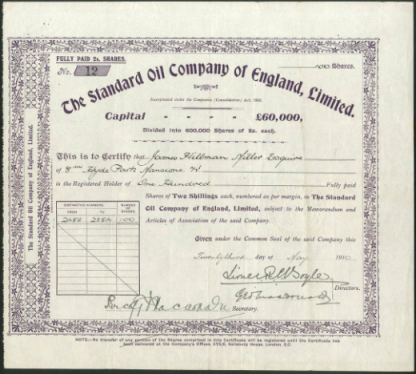 FULLY PAID 2s. SHARES.
No. 12
100 Shares.
The Standard Oil Company of England, Limited.
Incorporated under the Companies (Consolidation) Act, 1908.
Capital - - - - £60,000,
Divided into 600,000 Shares of 2s. each.
This is to Certify that James Hillman Miller Esquire
of Hyde Park Mansions
is the Registered Holder of One Hundred Fully paid
Shares of Two Shillings each, numbered as per margin, in The Standard
Oil Company of England, Limited, subject to the Memorandum and
Articles of Association of the said Company.
Given under the Common Seal of the said Company this
Twenty third day of May 191
Directors.
Secretary.
DISTINCTIVE NUMBERS.
NUMBER OF SHARES
FROM TO
100
The Standard Oil Company of England, Limited.
NOTE.—No transfer of any portion of the Shares comprised in this Certificate will be registered until the Certificate has
been delivered at the Company's Offices, Salisbury House, London, E.C.